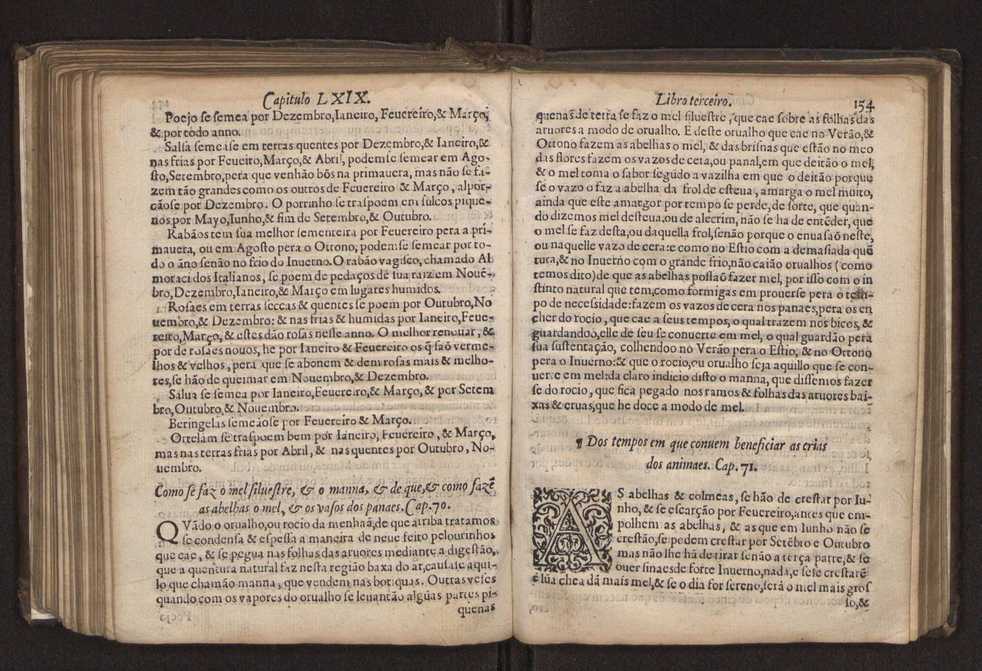 Capitulo LXIX.
Poejo se semea por Dezembro, Ianeiro, Feuereiro, & Março,
& por todo anno.
Salsa semease em terras quentes por Dezembro, & Ianeiro, &
nas frias por Feueiro, Março, & Abril, podemse semear em Ago-
sto, Setembro, pera que venhão bõs na primauera, mas não se fa-
zem tão grandes como os outros de Feuereiro & Março, alpor-
cãose por Dezembro. O porrinho se traspoem em sulcos peque-
nos por Mayo, Iunho, & fim de Setembro, & Outubro.
Rabãos tem sua melhor sementeira por Feuereiro pera a pri-
mauera, ou em Agosto pera o Ottono; podemse semear por to-
do o āno senão no frio do Inuerno. O rabão vagisco, chamado Al
moraci dos Italianos, se poem de pedaços de sua raiz em Nouē-
bro, Dezembro, Ianeiro, & Março em lugares humidos.
Rosaes em terras seccas & quentes se poem por Outubro, No
uembro, & Dezembro: & nas frias & humidas por Ianeiro, Feue-
reiro, Março, & estes dão rosas neste anno. O melhor renouar, &
por de rosaes nouos, he por Ianeiro & Feuereiro os q̃ saõ verme-
lhos & velhos, pera que se abonem & dem rosas mais & melho-
res, se hão de queimar em Nouembro, & Dezembro.
Salua se semea por Ianeiro, Feuereiro, & Março, & por Setem
bro, Outubro, & Nouembro.
Beringelas semeãose por Feuereiro & Março.
Ortelam se traspoem bem por Ianeiro, Feuereiro, & Março,
mas nas terras frias por Abril, & nas quentes por Outubro, No-
uembro.
Como se faz o mel siluestre, & o manna, & de que, & como fazē
as abelhas o mel, & os vasos dos panaes. Cap. 70.
QVādo o orualho, ou rocio da menhaã, de que atriba tratamos
se condensa & espessa a maneira de neue feito pelourinhos
que cae, & se pega nas folhas das aruores mediante a digestão,
que a quentura natural faz nesta região baxa do ar, causase aqui-
lo que chamão manna, que vendem nas botiquas. Outras veses
quando com os vapores do orualho se leuantão algũas partes pi-
quenas
Libro terceiro. 154
quenas de terra se faz o mel siluestre, que cae sobre as folhas das
aruores a modo de orualho. E deste orualho que cae no Verão, &
Ottono fazem as abelhas o mel, & das brisnas que estão no meo
das flores fazem os vazos de cera, ou panal, em que deitão o mel;
& o mel toma o sabor segūdo a vazilha em que o deitão porque
se o vazo o faz a abelha da frol de esteua, amarga o mel muito,
ainda que este amargor por tempo se perde, de sorte, que quan-
do dizemos mel desteua, ou de alecrim, não se ha de entēder, que
o mel se faz desta, ou daquella frol, senão porque o enuasaõ neste,
ou naquelle vazo de cera: & como no Estio com a demasiada quē
tura, & no Inuerno com o grande frio, não caião orualhos (como
temos dito) de que as abelhas possaõ fazer mel, por isso com o in
stinto natural que tem, como formigas em prouerse pera o tem-
po de necessidade: fazem os vazos de cera nos panaes, pera os en
cher do rocio, que cae a seus tempos, o qual trazem nos bicos, &
guardandoo, elle de seu se conuerte em mel, o qual guardão pera
sua sustentação, colhendo no Verão pera o Estio, & no Ottono
pera o Inuerno: & que o rocio, ou orualho seja aquillo que se con-
uerte em mel, da claro indicio disto o manna, que dissemos fazer
se do rocio, que fica pegado nos ramos & folhas das aruores bai-
xas & cruas, que he doce a modo de mel.
¶ Dos tempos em que conuem beneficiar as crias
dos animaes. Cap. 71.
AS abelhas & colmeas, se hão de crestar por Iu-
nho, & se escarção por Feuereiro, antes que em-
polhem as abelhas, & as que em Iunho não se
crestão, se podem crestar por Setēbro e Outubro
mas não lhe hã de tirar senão a terça parte, & se
ouer sinaes de forte Inuerno, nada, e se se crestarē
é lũa chea dá mais mel, & se o dia for sereno, será o mel mais gros
so, &